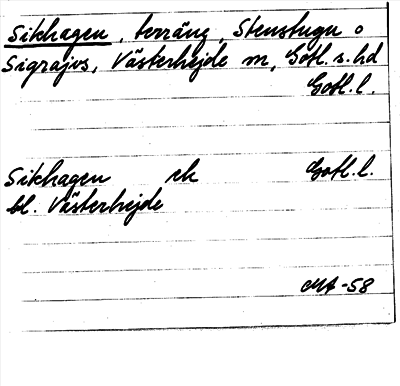 Sikhagen, terräng, Stenstugu o
Sigrajvs, Västerhejde sn, Gotl. s. hd
Gotl. l.
Sikhagen ek Gotl. l.
bl. Västerhejde
MA-58